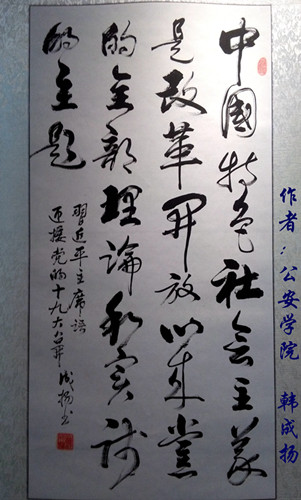 中國特色社会主義
是改革開放以來黨
的全部理論和实践
的主题
習近平主席語
迎接党的十九大召开 成扬书
作者：公安学院 韩成扬